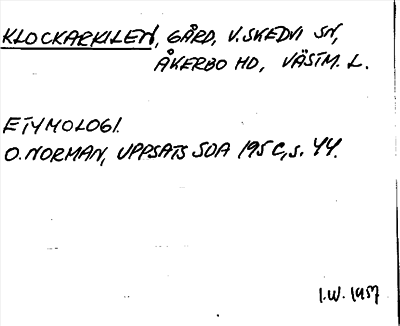 KLOCKARKILEN, GÅRD, V. SKEDVI SN,
ÅKERBO HD, VÄSTM. L.
ETYMOLOGI.
O. NORMAN, UPPSATS SOA 195 C, s. 44.
I.W. 1957